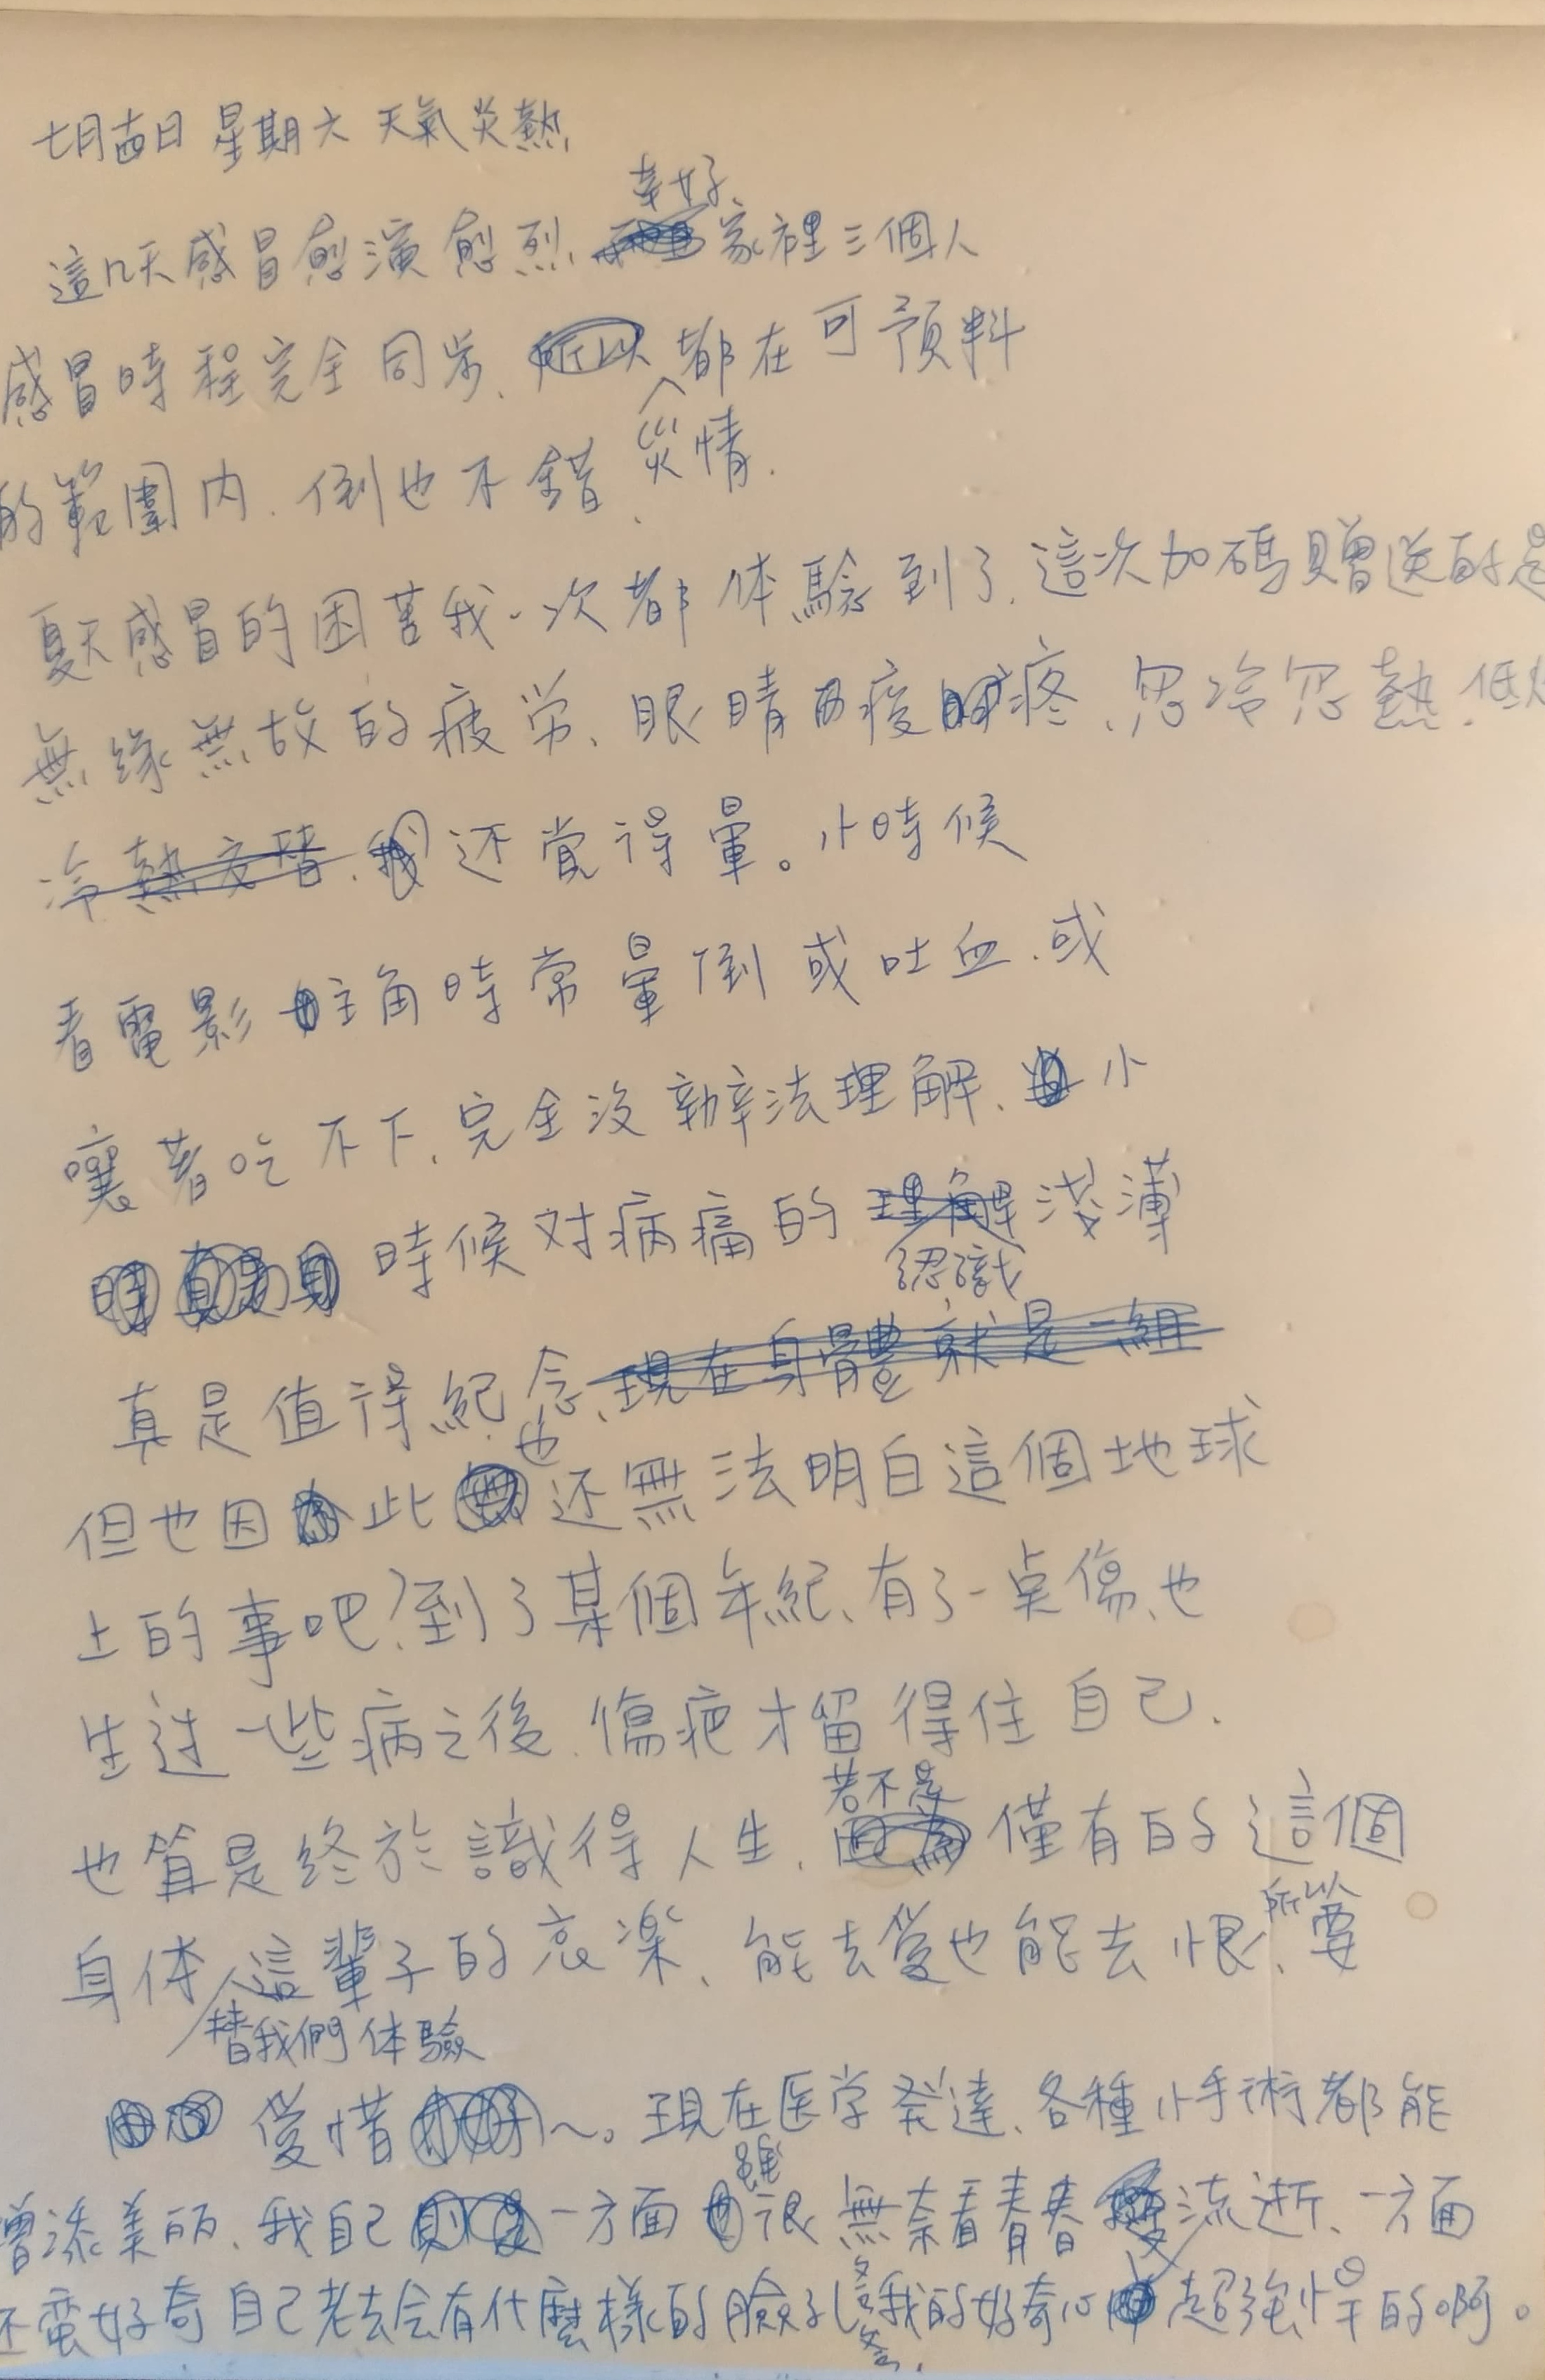 七月十四日 星期六 天氣炎熱
這几天感冒愈演愈烈、幸好家裡三個人
感冒時程完全同步、災情都在可預料
的範圍內. 倒也不錯.
夏天感冒的困苦我一次都体驗到了. 這次加碼贈送的是
無緣無故的疲労、眼睛痠疼、忽冷忽熱、低
冷熱交替、还覚得暈。小時候
看電影主角時常暈倒或吐血、或
嚷著吃不下、完全沒辦法理解、小
時候对病痛的認識淺薄
真是值得紀念、現在身體就是一組
但也因此也还無法明白這個地球
上的事吧?到了某個年紀、有了一点傷、也
生过一些病之後、傷疤才留得住自己.
也算是終於識得人生、若不是僅有的這個
身体替我們体驗這輩子的哀楽、能去愛也能去恨、所以要
愛惜～。現在医学発達、各種小手術都能
增添美丽、我自己一方面雖很無奈看青春流逝、一方面
还蛮好奇自己老去会有什麼樣的臉孔、我的好奇心超強悍的啊。